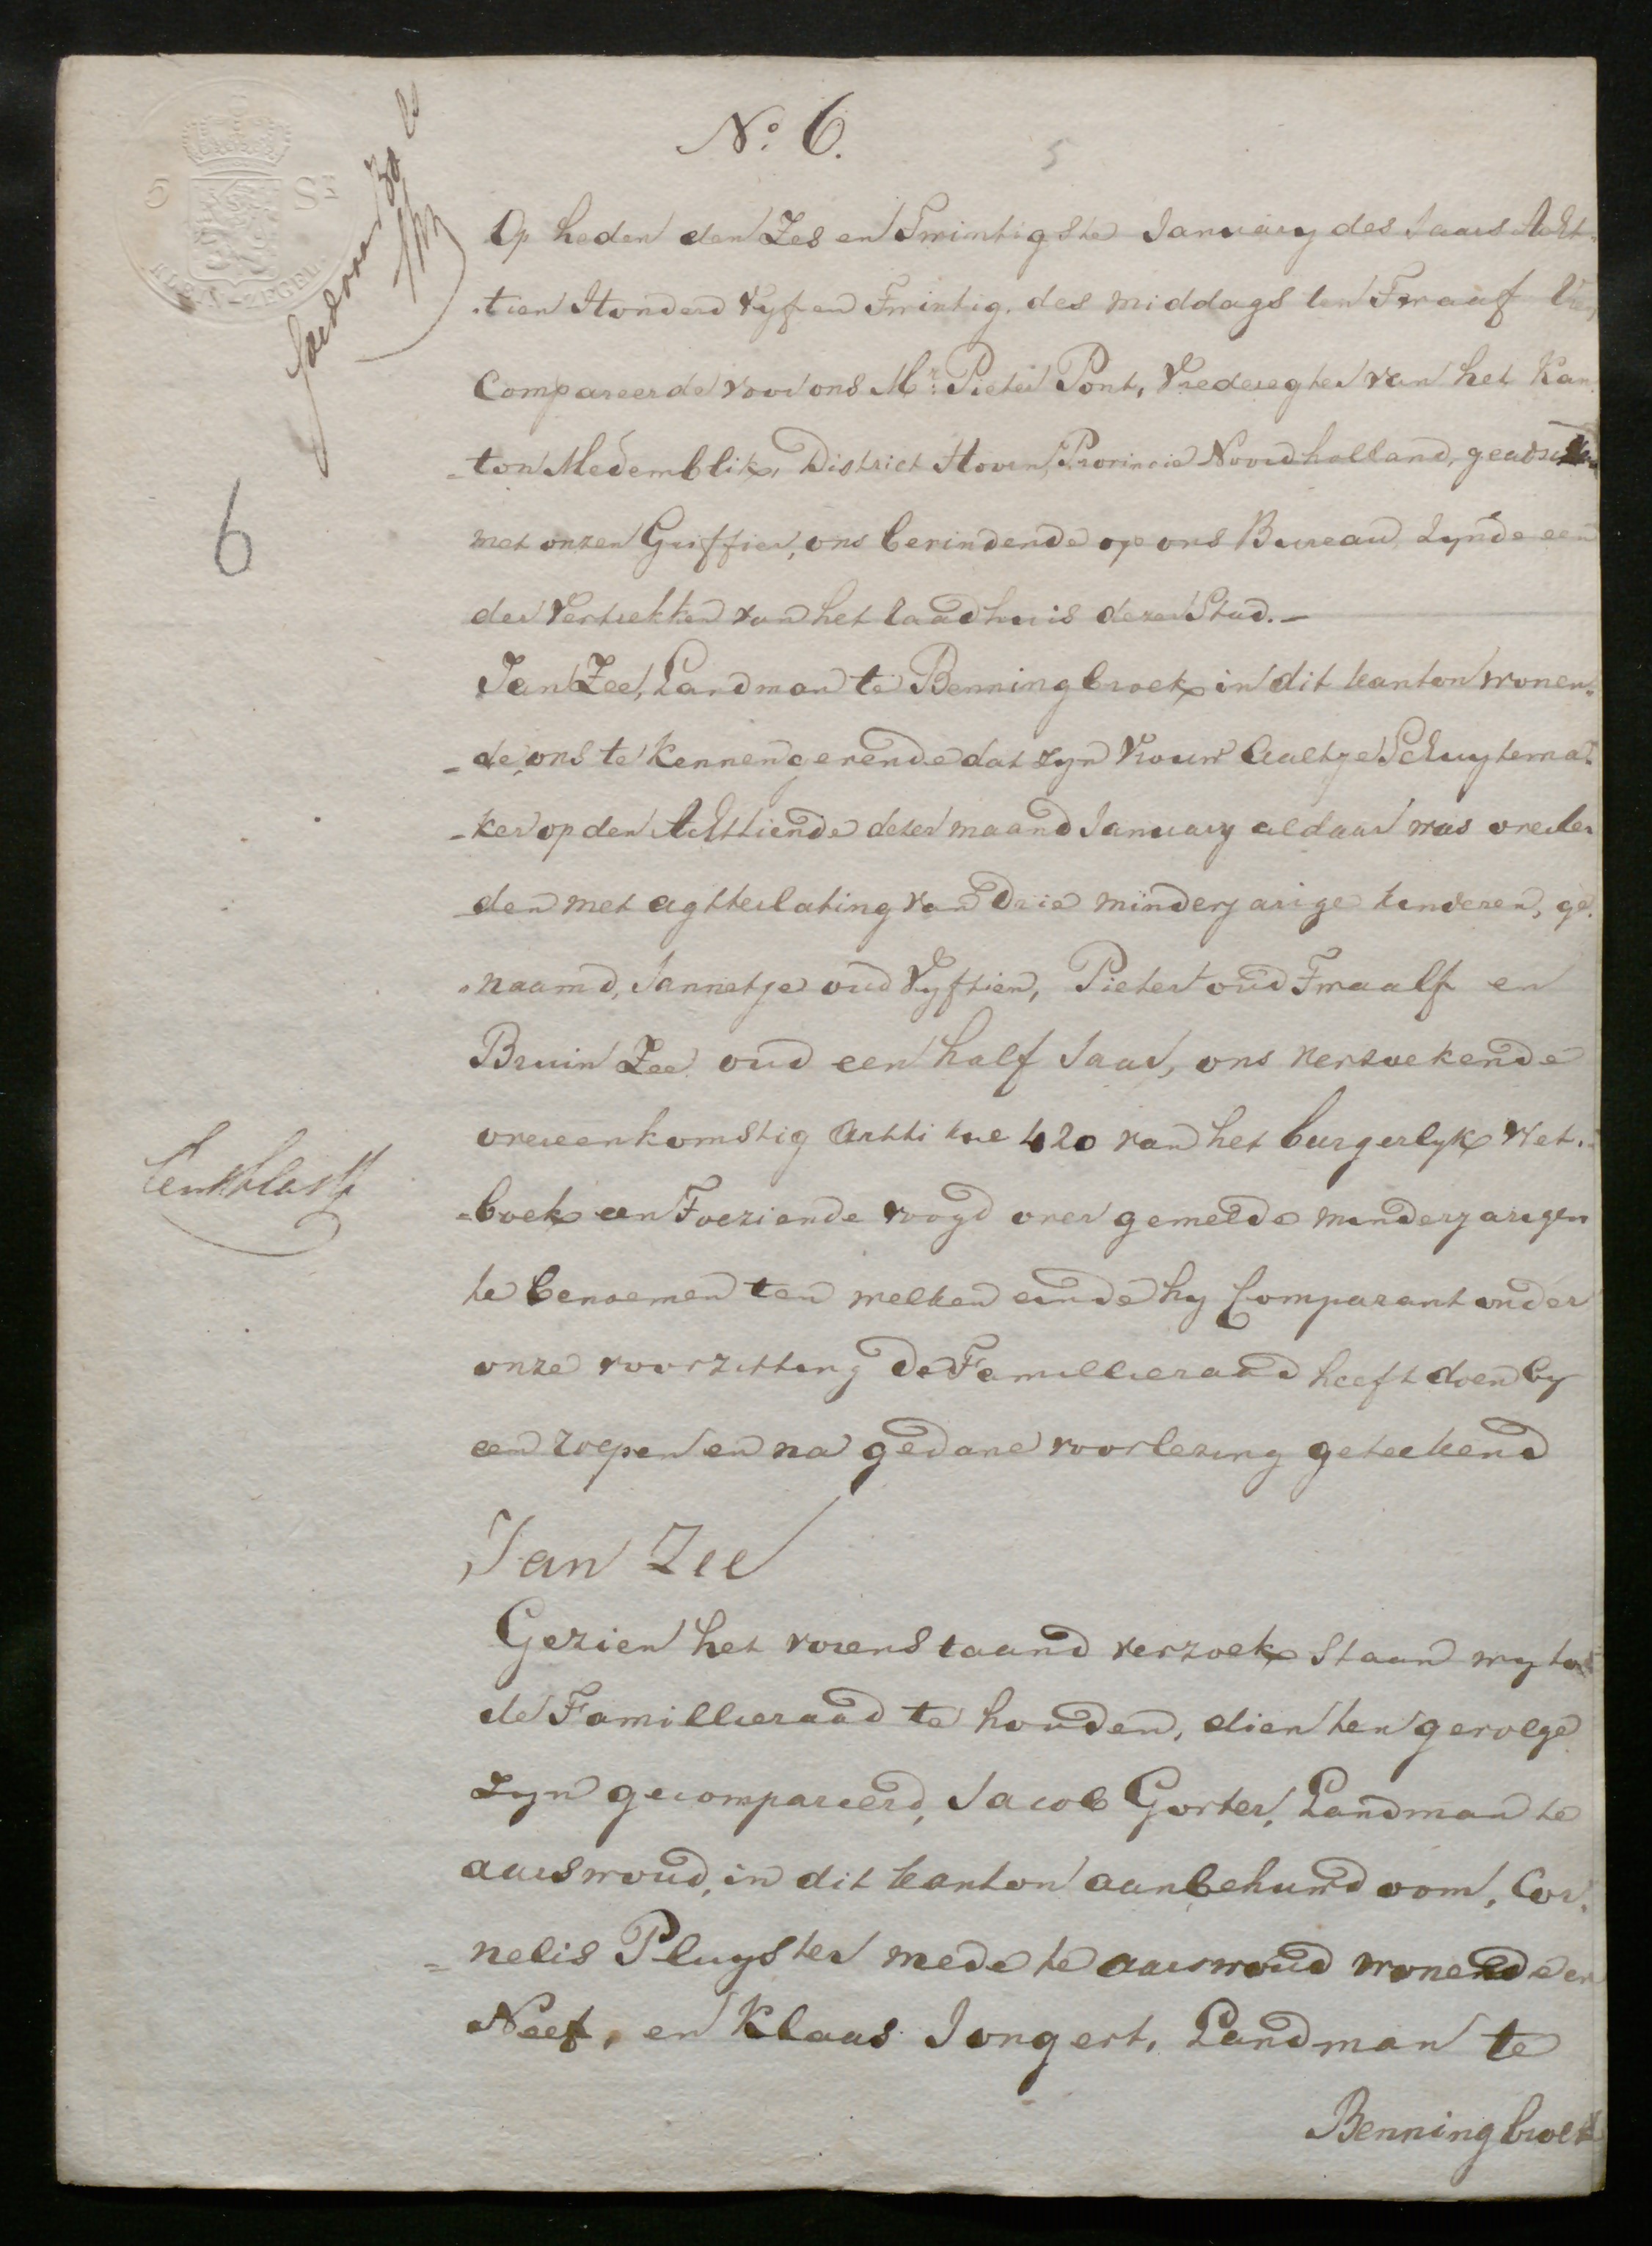 No. 6.
5
5 St
KLEIN-ZEGEL.
6
Op heden den Zes en Twintigste January des Jaars Acht-
-tien Honderd Vyf en Twintig, des middags ten Twaalf Ure,
Compareerde voor ons Mr. Pieter Pont, Vrederegter van het Kan-
-ton Medemblik, District Hoorn, Provincie Noordholland, geadsisteerd
met onzen Griffier, ons bevindende op ons Bureau zynde een
der Vertrekken van het Raadhuis dezer Stad. –
Jan Zee, Landman te Benningbroek in dit kanton wonen-
-de, ons te Kennen gevende dat zyn Vrouw Aaltje Schuytema-
-ker op den Achttiende dezer maand January aldaar was overle
-den met agtterlating van Drie minderjarige kinderen, ge-
-naamd, Jannetje oud Vyftien, Pieter oud Twaalf en
Bruin Zee oud een half Jaar, ons verzoekende
overeenkomstig Artikel 420 van het burgerlyk Wet-
-boek een Toeziende voogd over gemelde minderjarigen
te benoemen ten welken einde hy Comparant onder
onze voorzitting de Famillieraad heeft doen by
een roepen en na gedane voorlezing geteekend
Jan Zee
Gezien het vorenstaand verzoek staan wy toe
de Famillieraad te houden, dien ten gevolge
zyn gecompareerd, Jacob Gorter, Landman te
aarswoud, in dit kanton aanbehuwd oom, Cor-
-nelis Pluyster mede te aarswoud wonende en
Neef, en Klaas Jongert, Landman te
Benningbroek